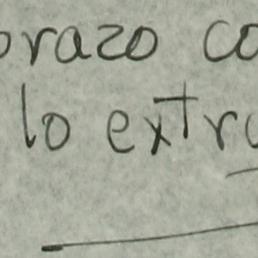 orazo co
lo extra